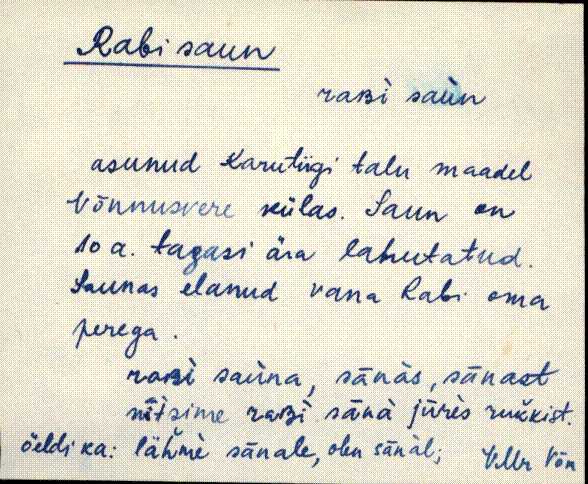 Rabi saun
raʙì saùn
asunud Karutiigi talu maadel
Võnnusvere külas. Saun on
10 a. tagasi ära lahutatud.
Saunas elanud vana Rabi oma
perega.
raʙì saùna, sānàs, sānast
nītsime raʙì sānà jūrès rukkist.
öeldi ka: lähmè sānale, olen sānàl;